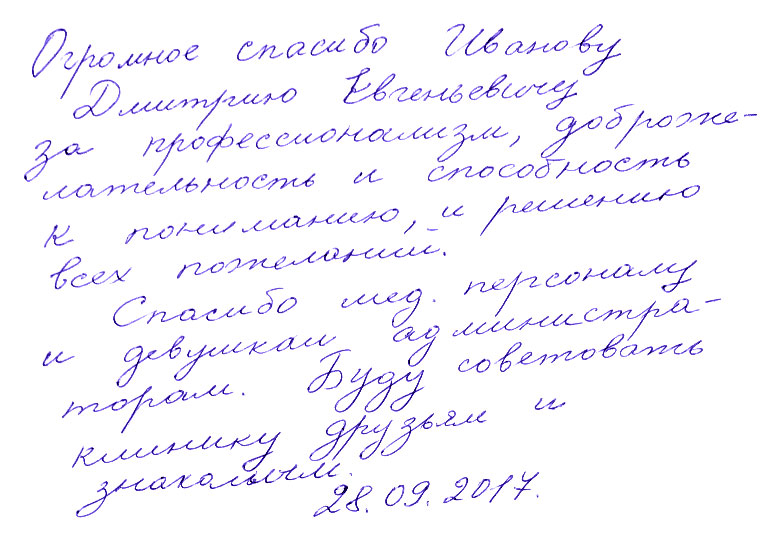 Огромное спасибо Иванову
Дмитрию Евгеньевичу
за профессионализм, доброже-
лательность и способность
к пониманию, и решению
всех пожеланий.
Спасибо мед. персоналу
и девушкам администра-
торам. Буду советовать
клинику друзьям и
знакомым.
28.09.2017.